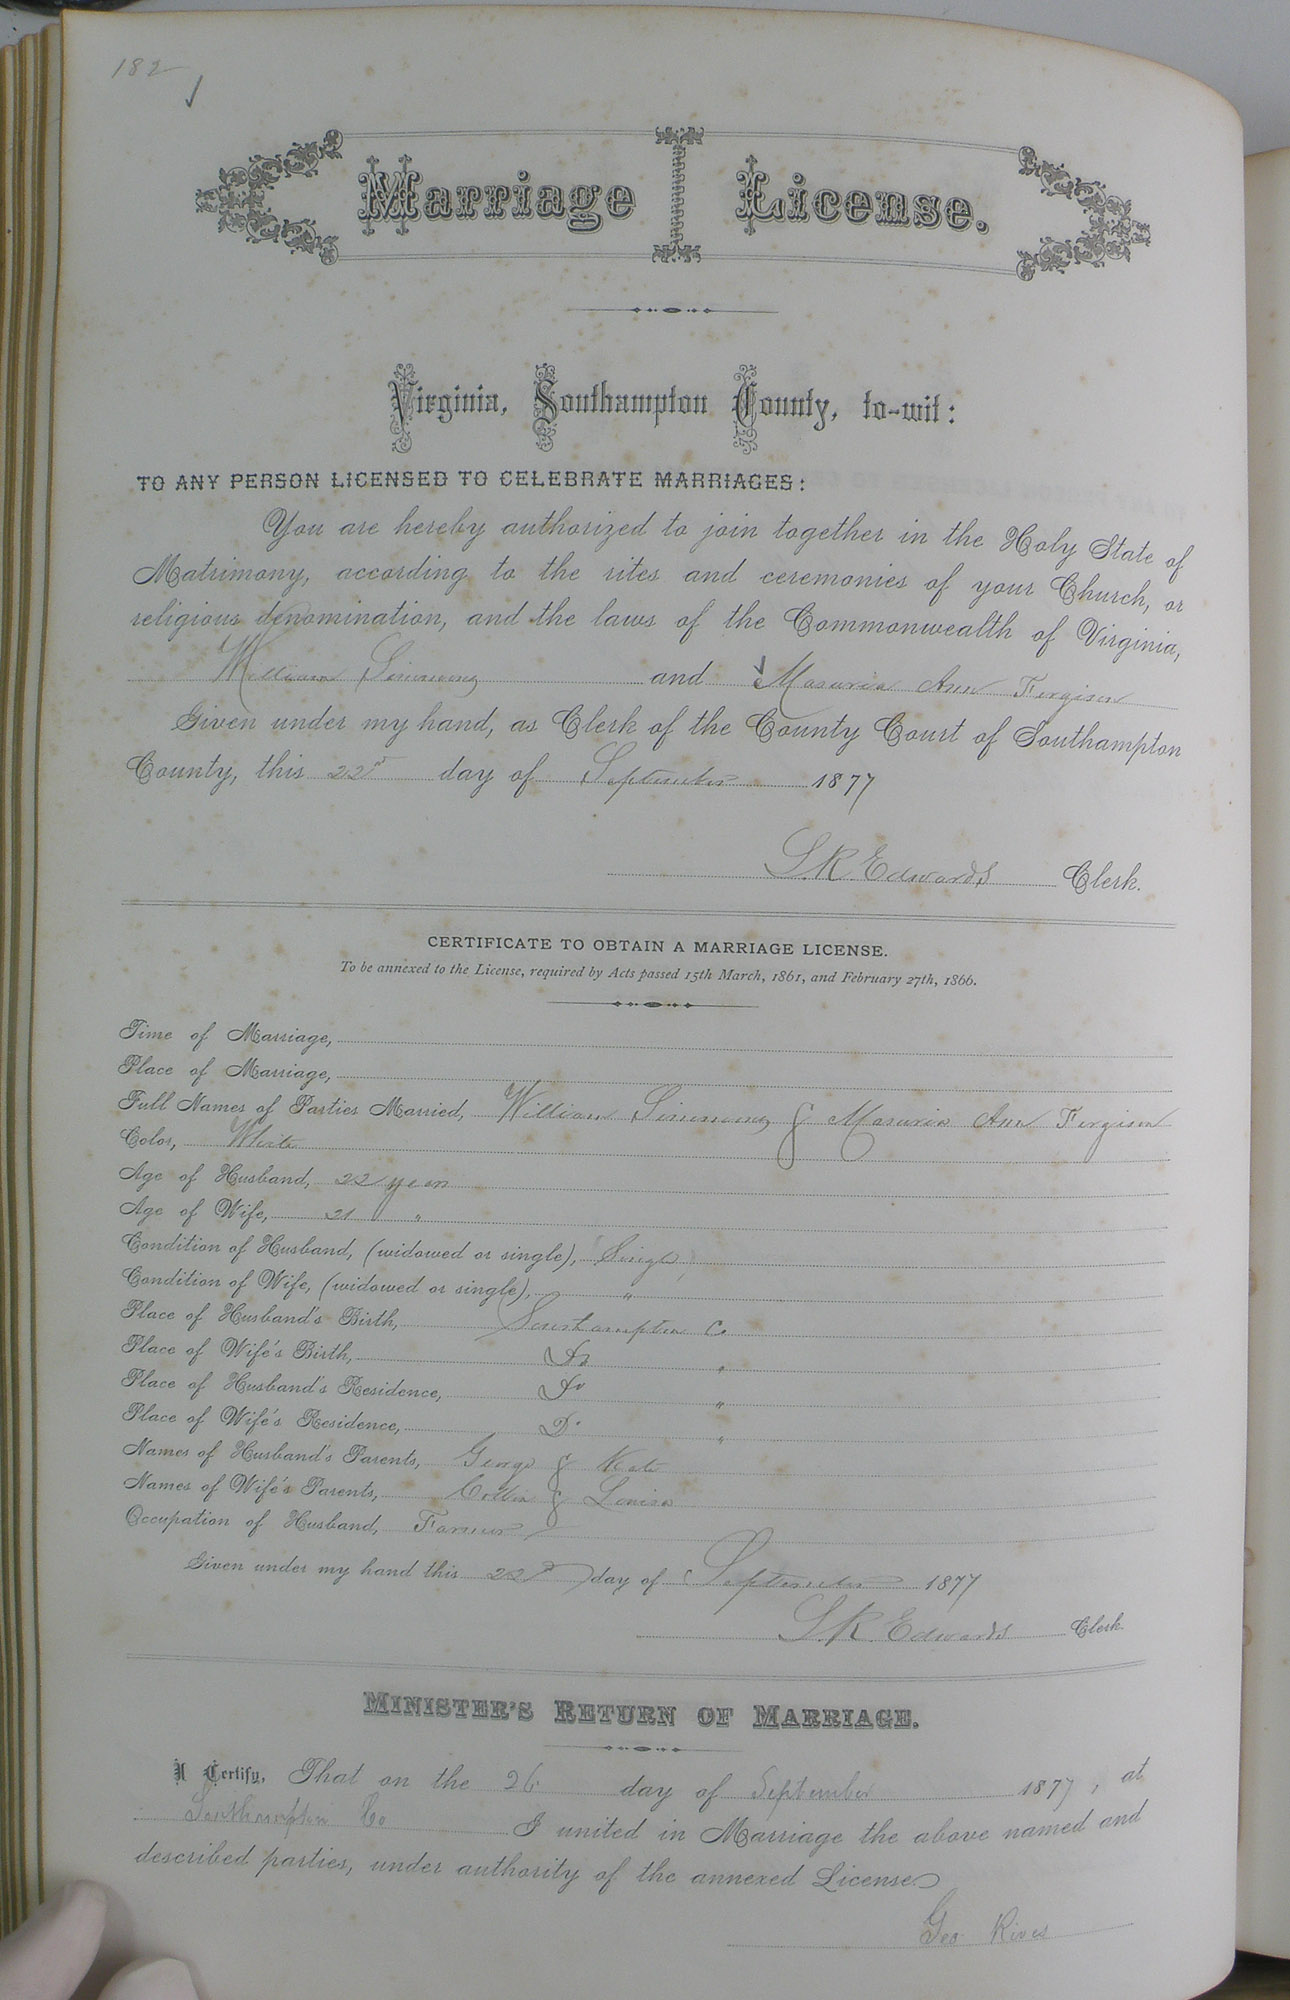 182
Marriage License.
Virginia, Southampton County, to-wit:
TO ANY PERSON LICENSED TO CELEBRATE MARRIAGES:
You are hereby authorized to join together in the Holy State of
Matrimony, according to the rites and ceremonies of your Church, or
religious denomination, and the laws of the Commonwealth of Virginia,
William Simmons and Ann Fergison
Given under my hand, as Clerk of the County Court of Southampton
County, this 22d day of September 1877
L.R. Edwards Clerk.
CERTIFICATE TO OBTAIN A MARRIAGE LICENSE.
To be annexed to the License, required by Acts passed 15th March, 1861, and February 27th, 1866.
Time of Marriage,
Place of Marriage,
Full Names of Parties Married, William Simmons & Ann Fergison
Color, White
Age of Husband, 22 years
Age of Wife, 21 "
Condition of Husband, (widowed or single), Single
Condition of Wife, (widowed or single), "
Place of Husband's Birth, Southampton Co
Place of Wife's Birth, Do "
Place of Husband's Residence, Do "
Place of Wife's Residence, Do "
Names of Husband's Parents, George & Kate
Names of Wife's Parents, & Louisa
Occupation of Husband, Farmer
Given under my hand this 22d day of September 1877
L.R. Edwards Clerk.
MINISTER'S RETURN OF MARRIAGE.
I Certify, That on the 26 day of September 1877, at
Southampton Co I united in Marriage the above named and
described parties, under authority of the annexed License
Geo Rives